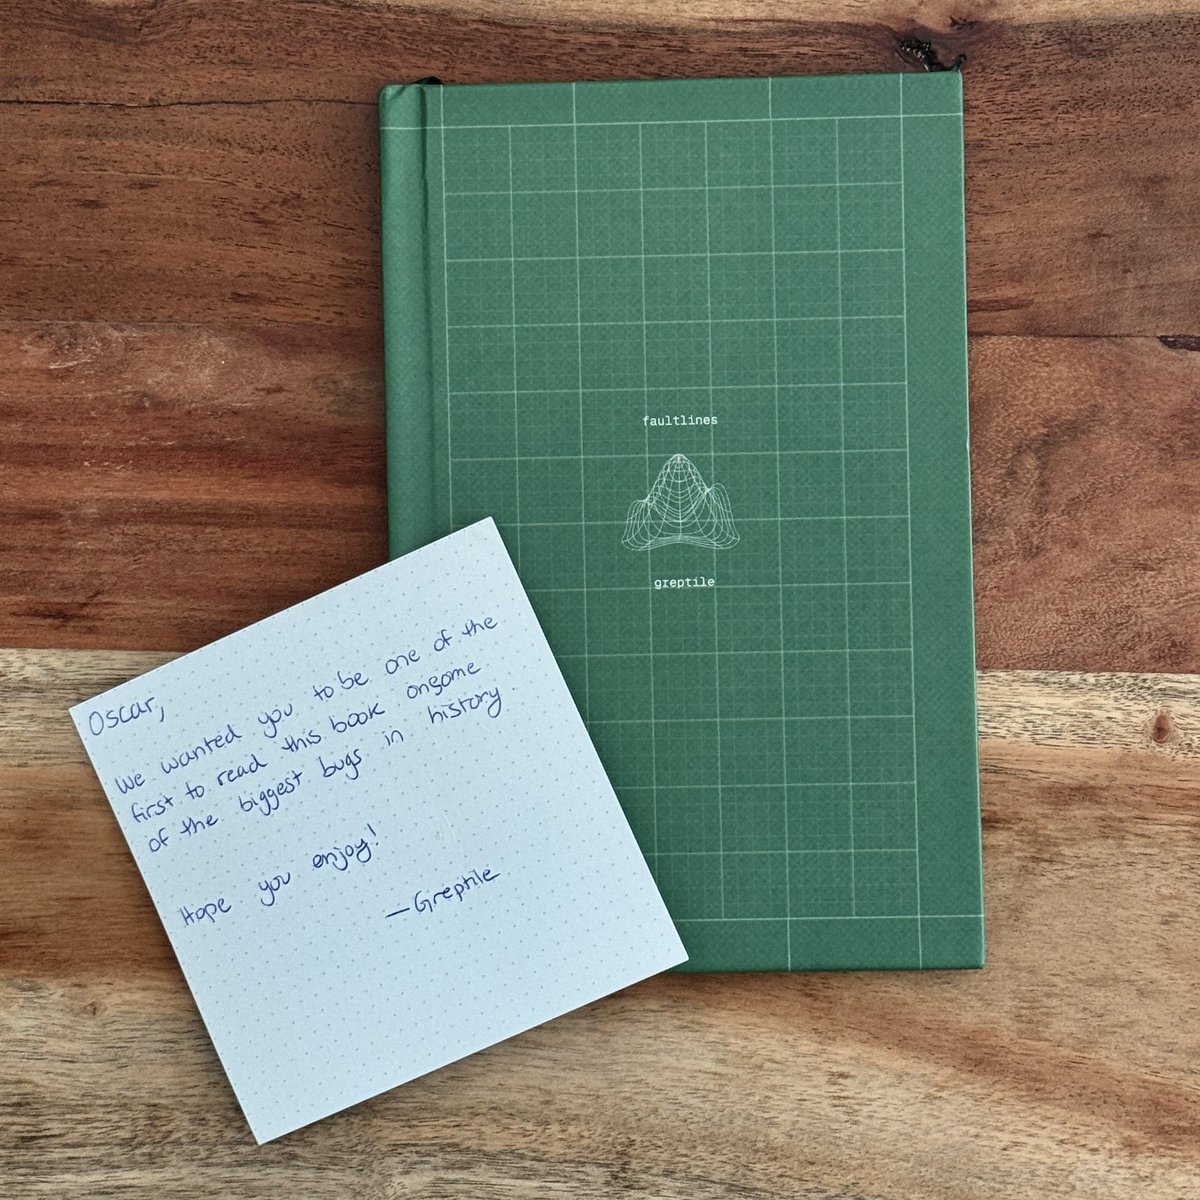 faultlines
greptile
Oscar,
We wanted you to be one of the
first to read this book onsome
of the biggest bugs in history.
Hope you enjoy!
—Greptile